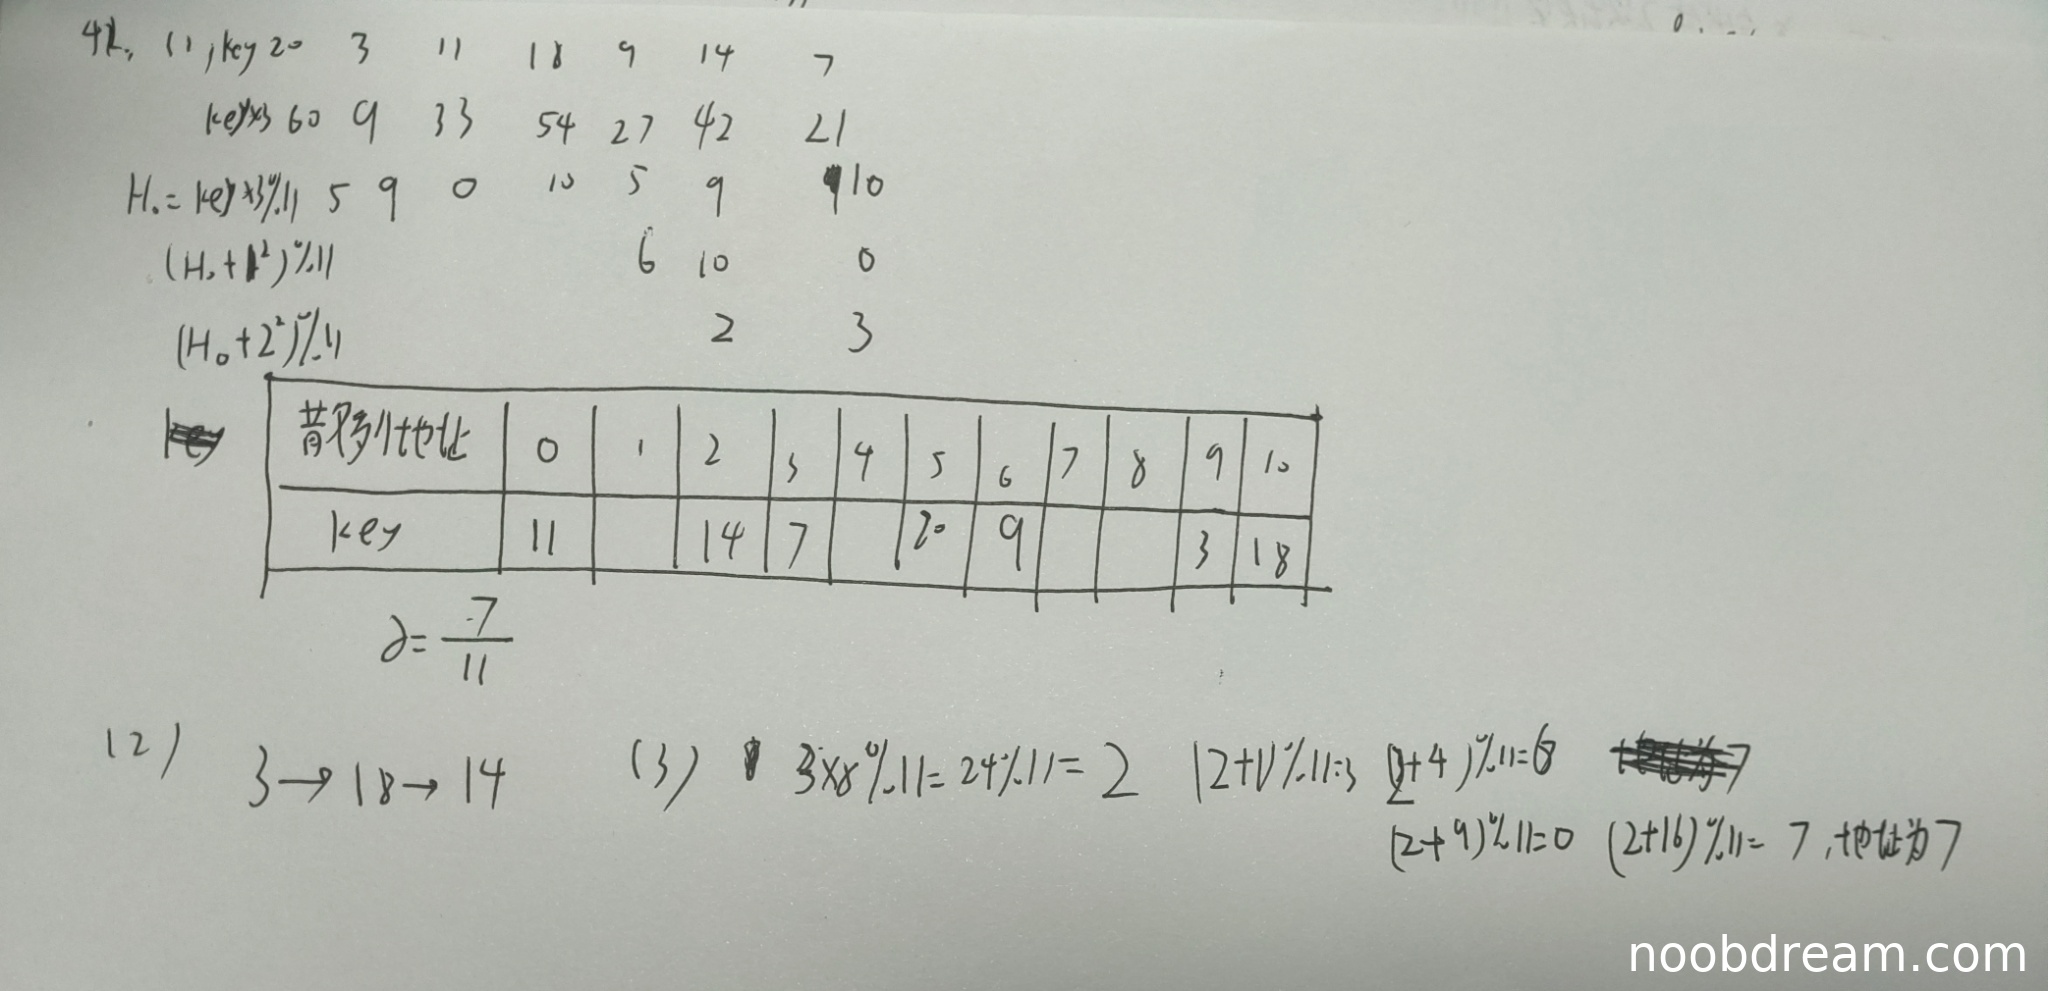 42, (1), key 20 3 11 18 9 14 7
key×3 60 9 33 54 27 42 21
H₀= key×3%11 5 9 0 10 5 9 10
(H₀+1²)%11 6 10 0
(H₀+2²)%11 2 3
散列地址 0 1 2 3 4 5 6 7 8 9 10
key 11 14 7 20 9 3 18
∂= 7/11
(2) 3→18→14
(3) 3×8%11=24%11=2 (2+1)%11=3 (2+4)%11=6
(2+9)%11=0 (2+16)%11= 7, 地址为7
noobdream.com